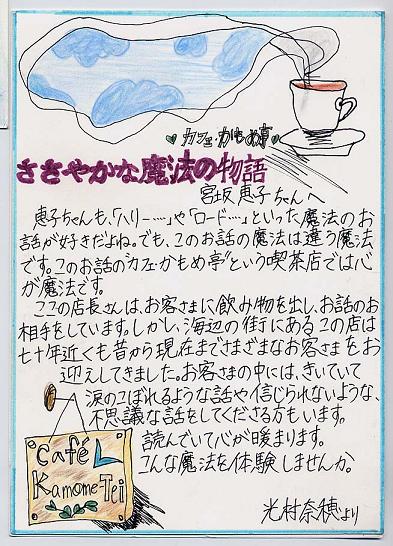 カフェ・かもめ亭
ささやかな魔法の物語
宮坂恵子ちゃんへ
恵子ちゃんも、「ハリー…」や「ロード…」といった魔法のお
話が好きだよね。でも、このお話の魔法は違う魔法
です。このお話の“カフェ・かもめ亭”という喫茶店では心
が魔法です。
ここの店長さんは、お客さまに飲み物を出し、お話のお
相手をしています。しかし、海辺の街にあるこの店は
七十年近くも昔から現在までさまざまなお客さまをお
迎えしてきました。お客さまの中には、きいていて
涙のこぼれるような話や信じられないような、
不思議な話をしてくださる方もいます。
読んでいて心が暖まります。
こんな魔法を体験しませんか。
Café
Kamome-Tei
光村奈穂より